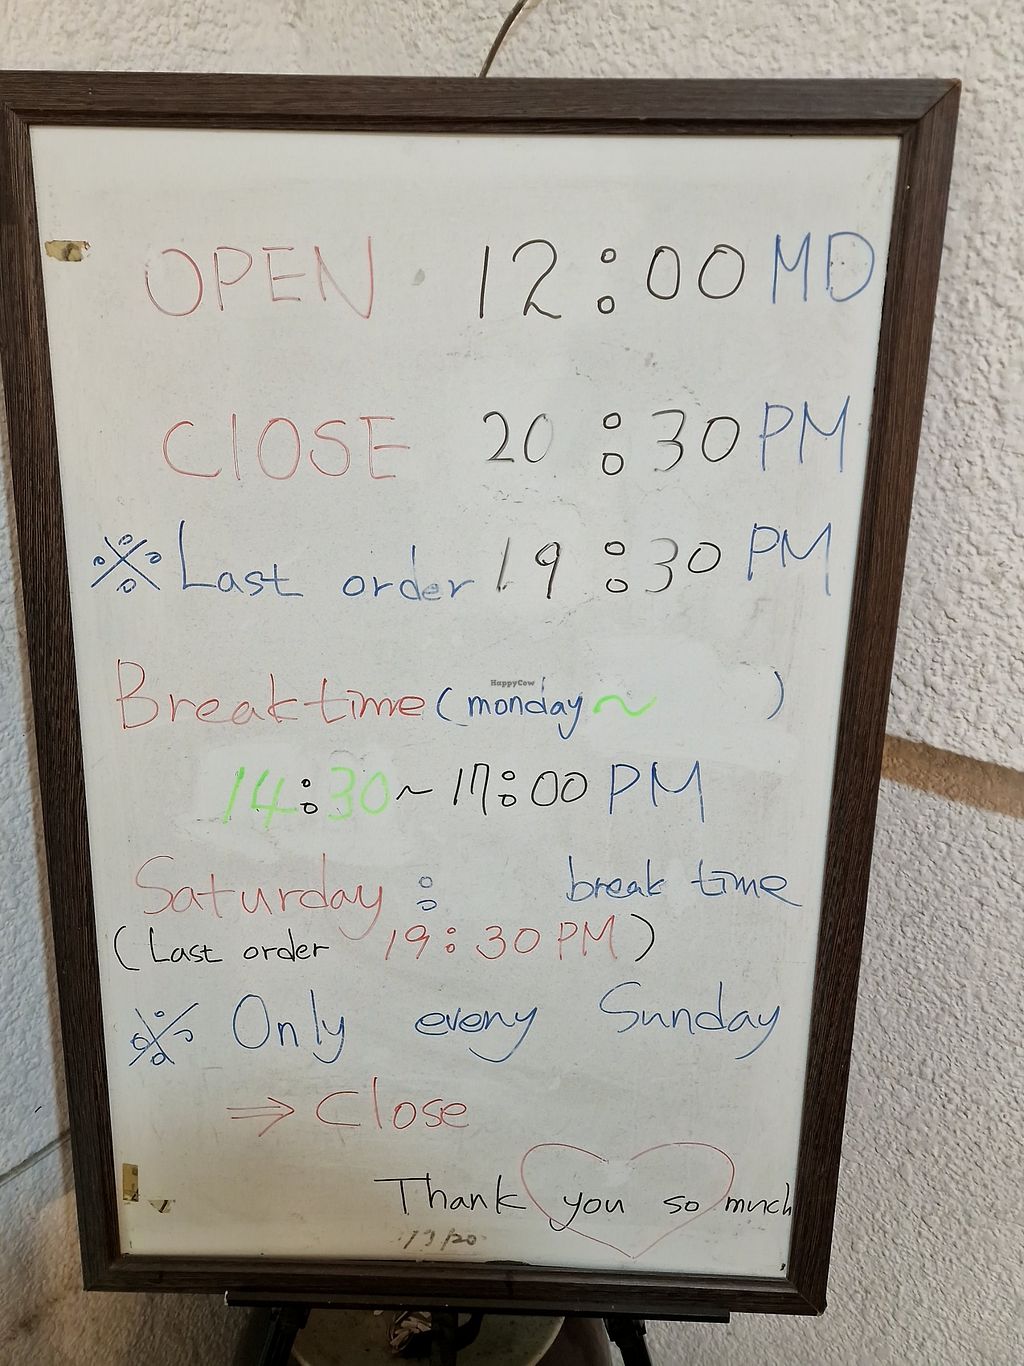 OPEN 12:00 MD
ClOSE 20:30 PM
※Last order 19:30 PM
HappyCow
Breaktime (monday~ )
14:30~17:00 PM
Saturday: break time
(Last order 19:30 PM)
※ Only every Sunday
⇒ Close
Thank you so much